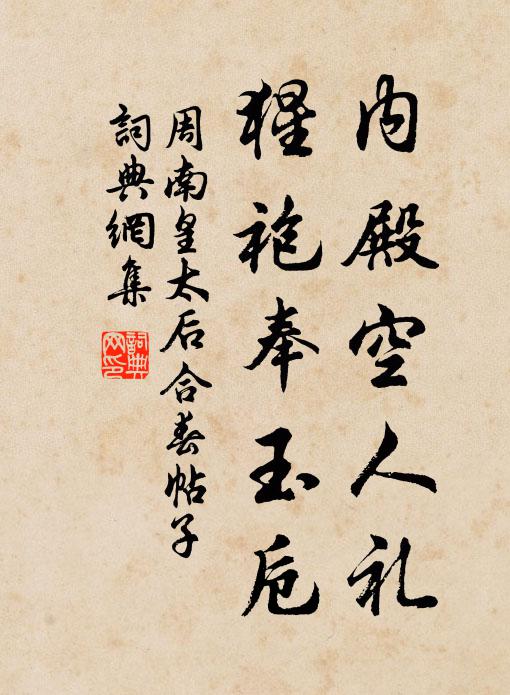 内殿空人礼
猩袍奉玉卮
周南皇太后合春帖子
詞典網集
詞典網印